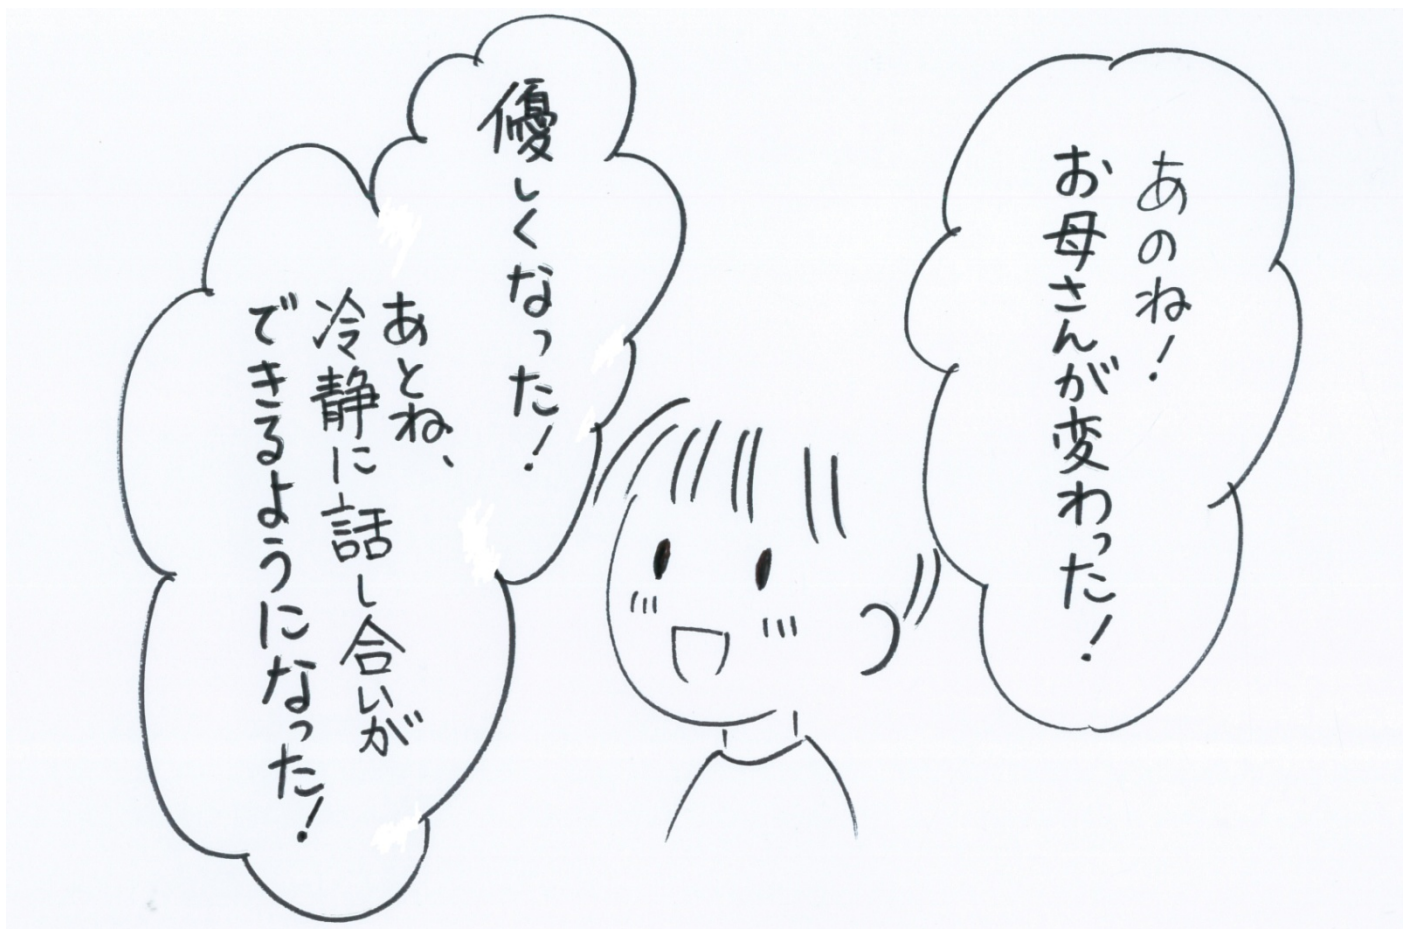 あのね!
お母さんが変わった!
優しくなった!
あとね、
冷静に話し合いが
できるようになった!